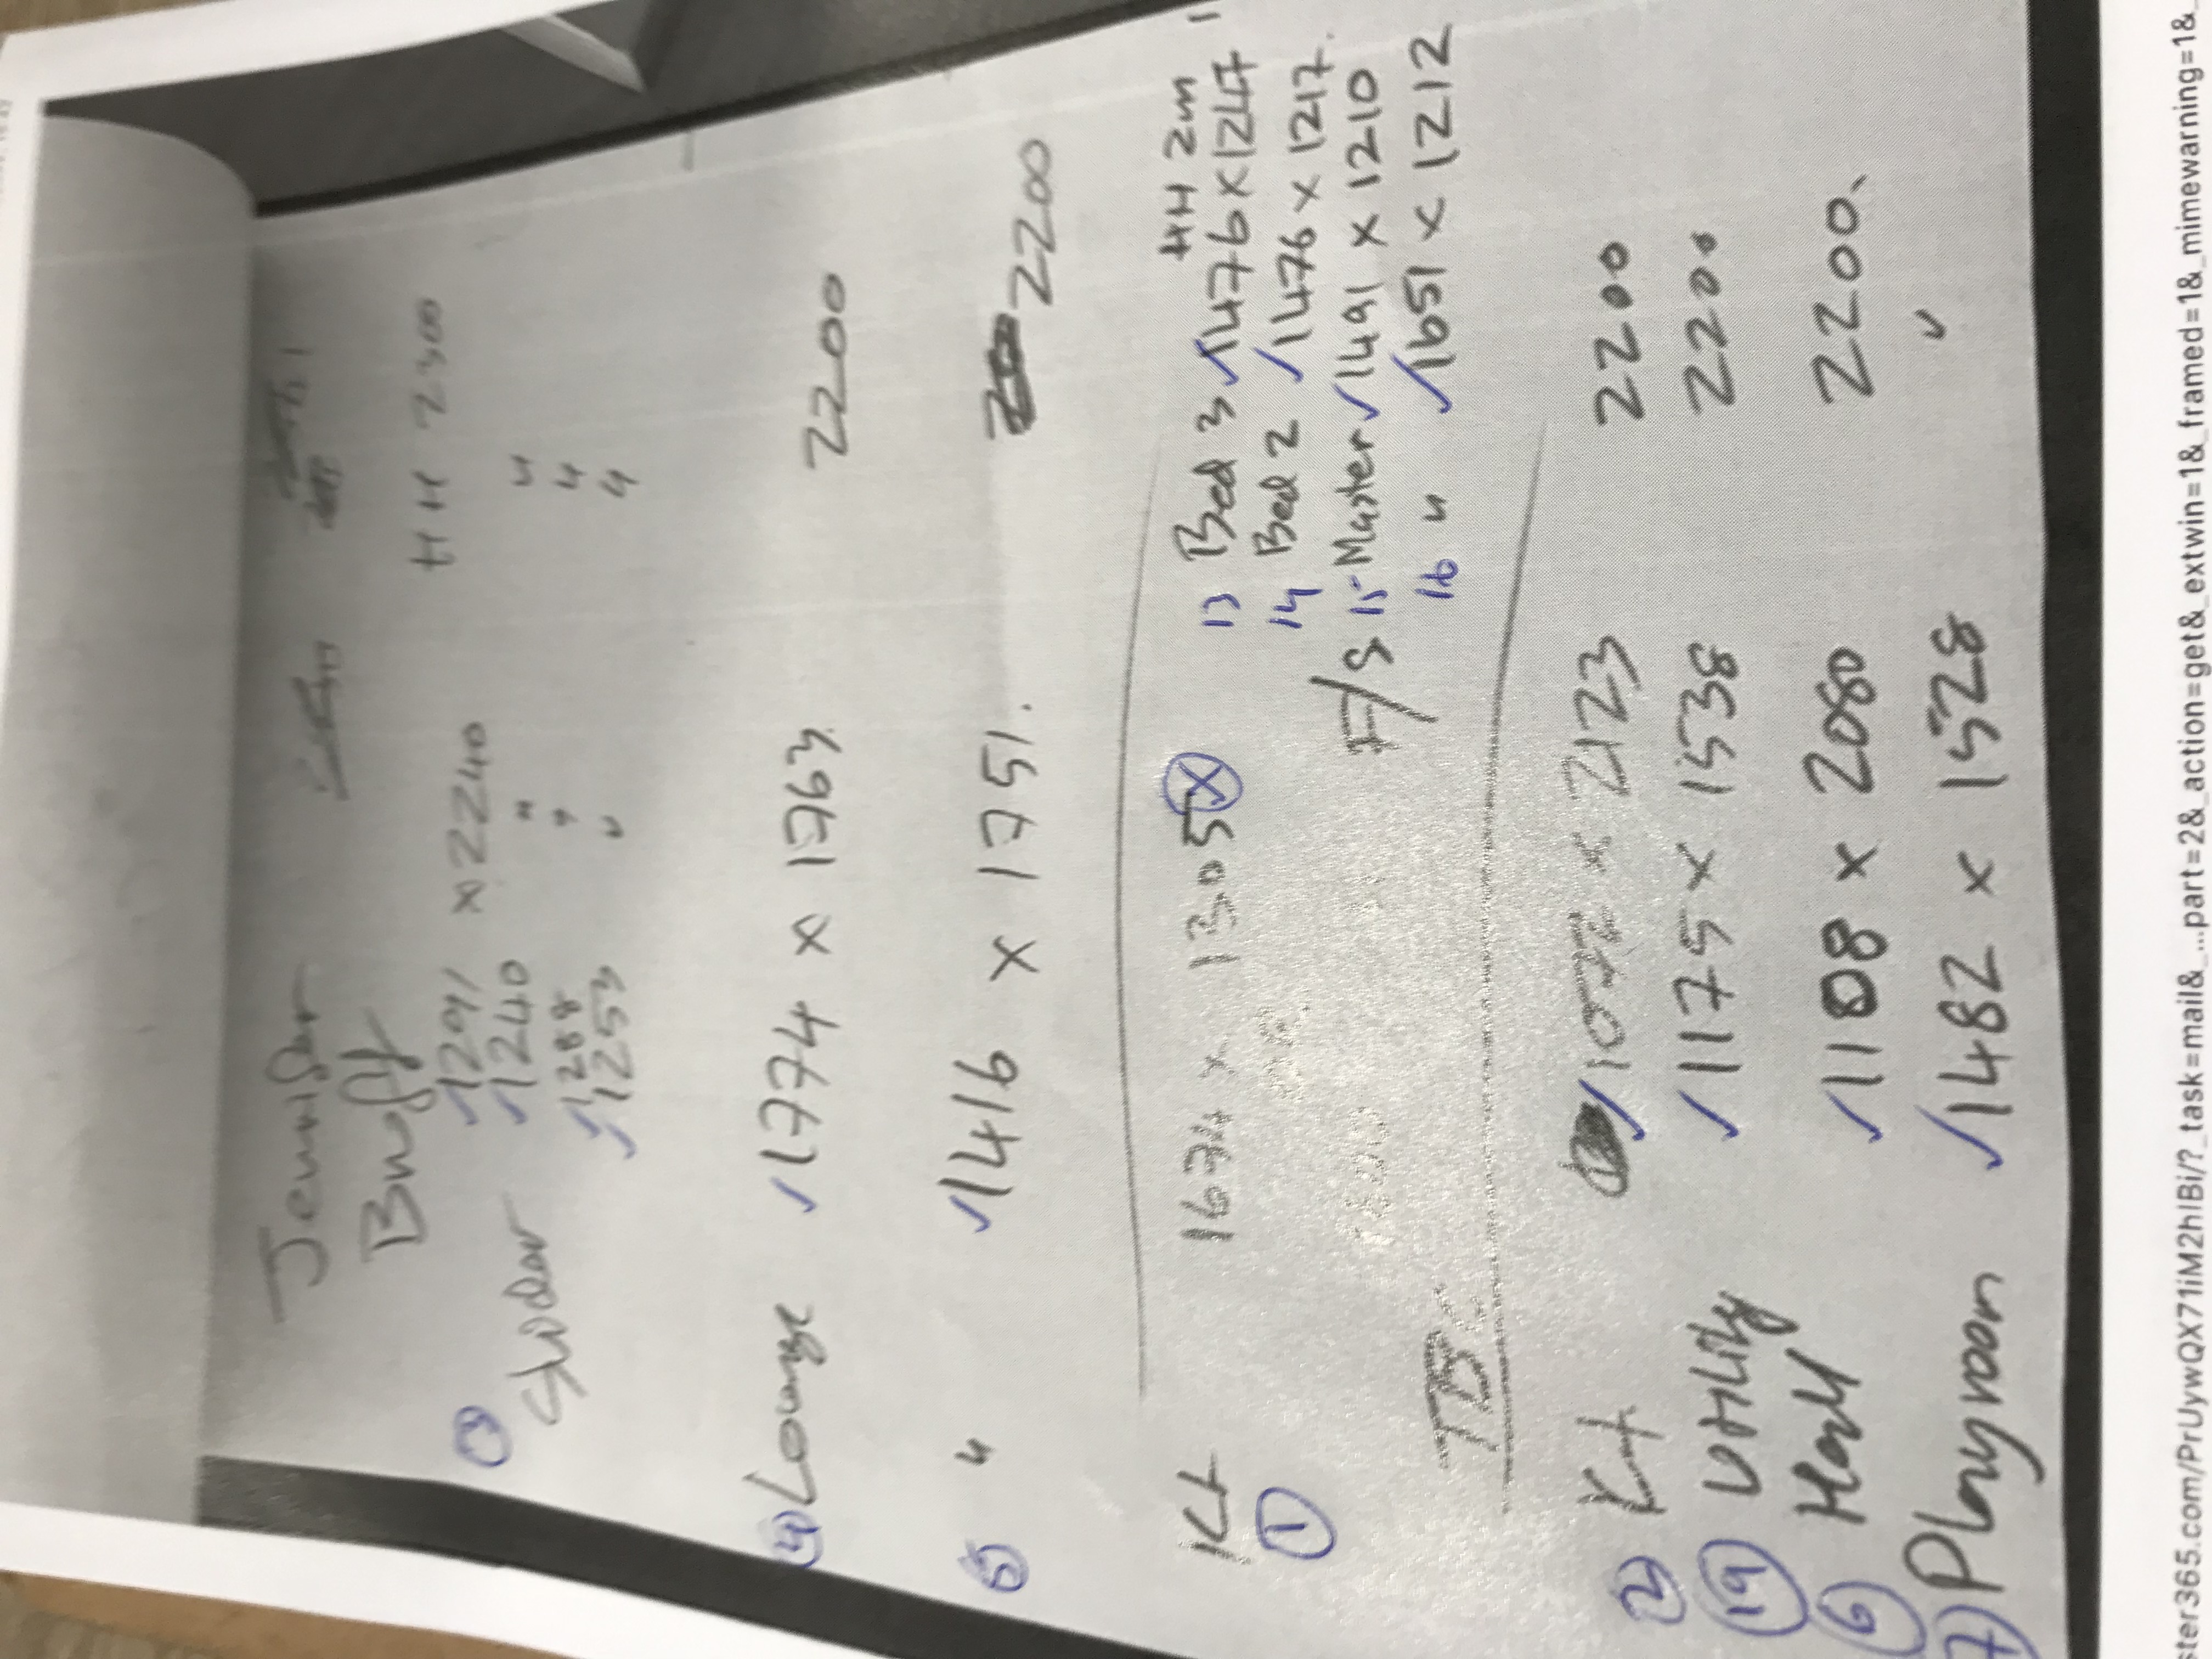 Jennifer
Bngff
✓1291 x 2240 HH 2300
③ ✓1240 " "
Slider ✓1288 " "
✓1253 " "
④ Lounge ✓1774 x 1763 2200
⑤ " ✓1416 x 1751. 2200
HH 2m
Kt 1674 x 1305 ⓧ 13 Bed 3 ✓1476 x 1247
① 14 Bed 2 ✓1476 x 1217.
F/S 15 - Master ✓1491 x 1210
16 " ✓1651 x 1212
TB
② Kt ✓1072 x 2123 2200
⑲ Utility ✓1175 x 1538 2200
⑥ Hall ✓1108 x 2080 2200.
⑦ Playroom ✓1482 x 1528 "
ster365.com/PrUywQX71iM2hIBi/?_task=mail&_...part=2&_action=get&_extwin=1&_framed=1&_mimewarning=1&_